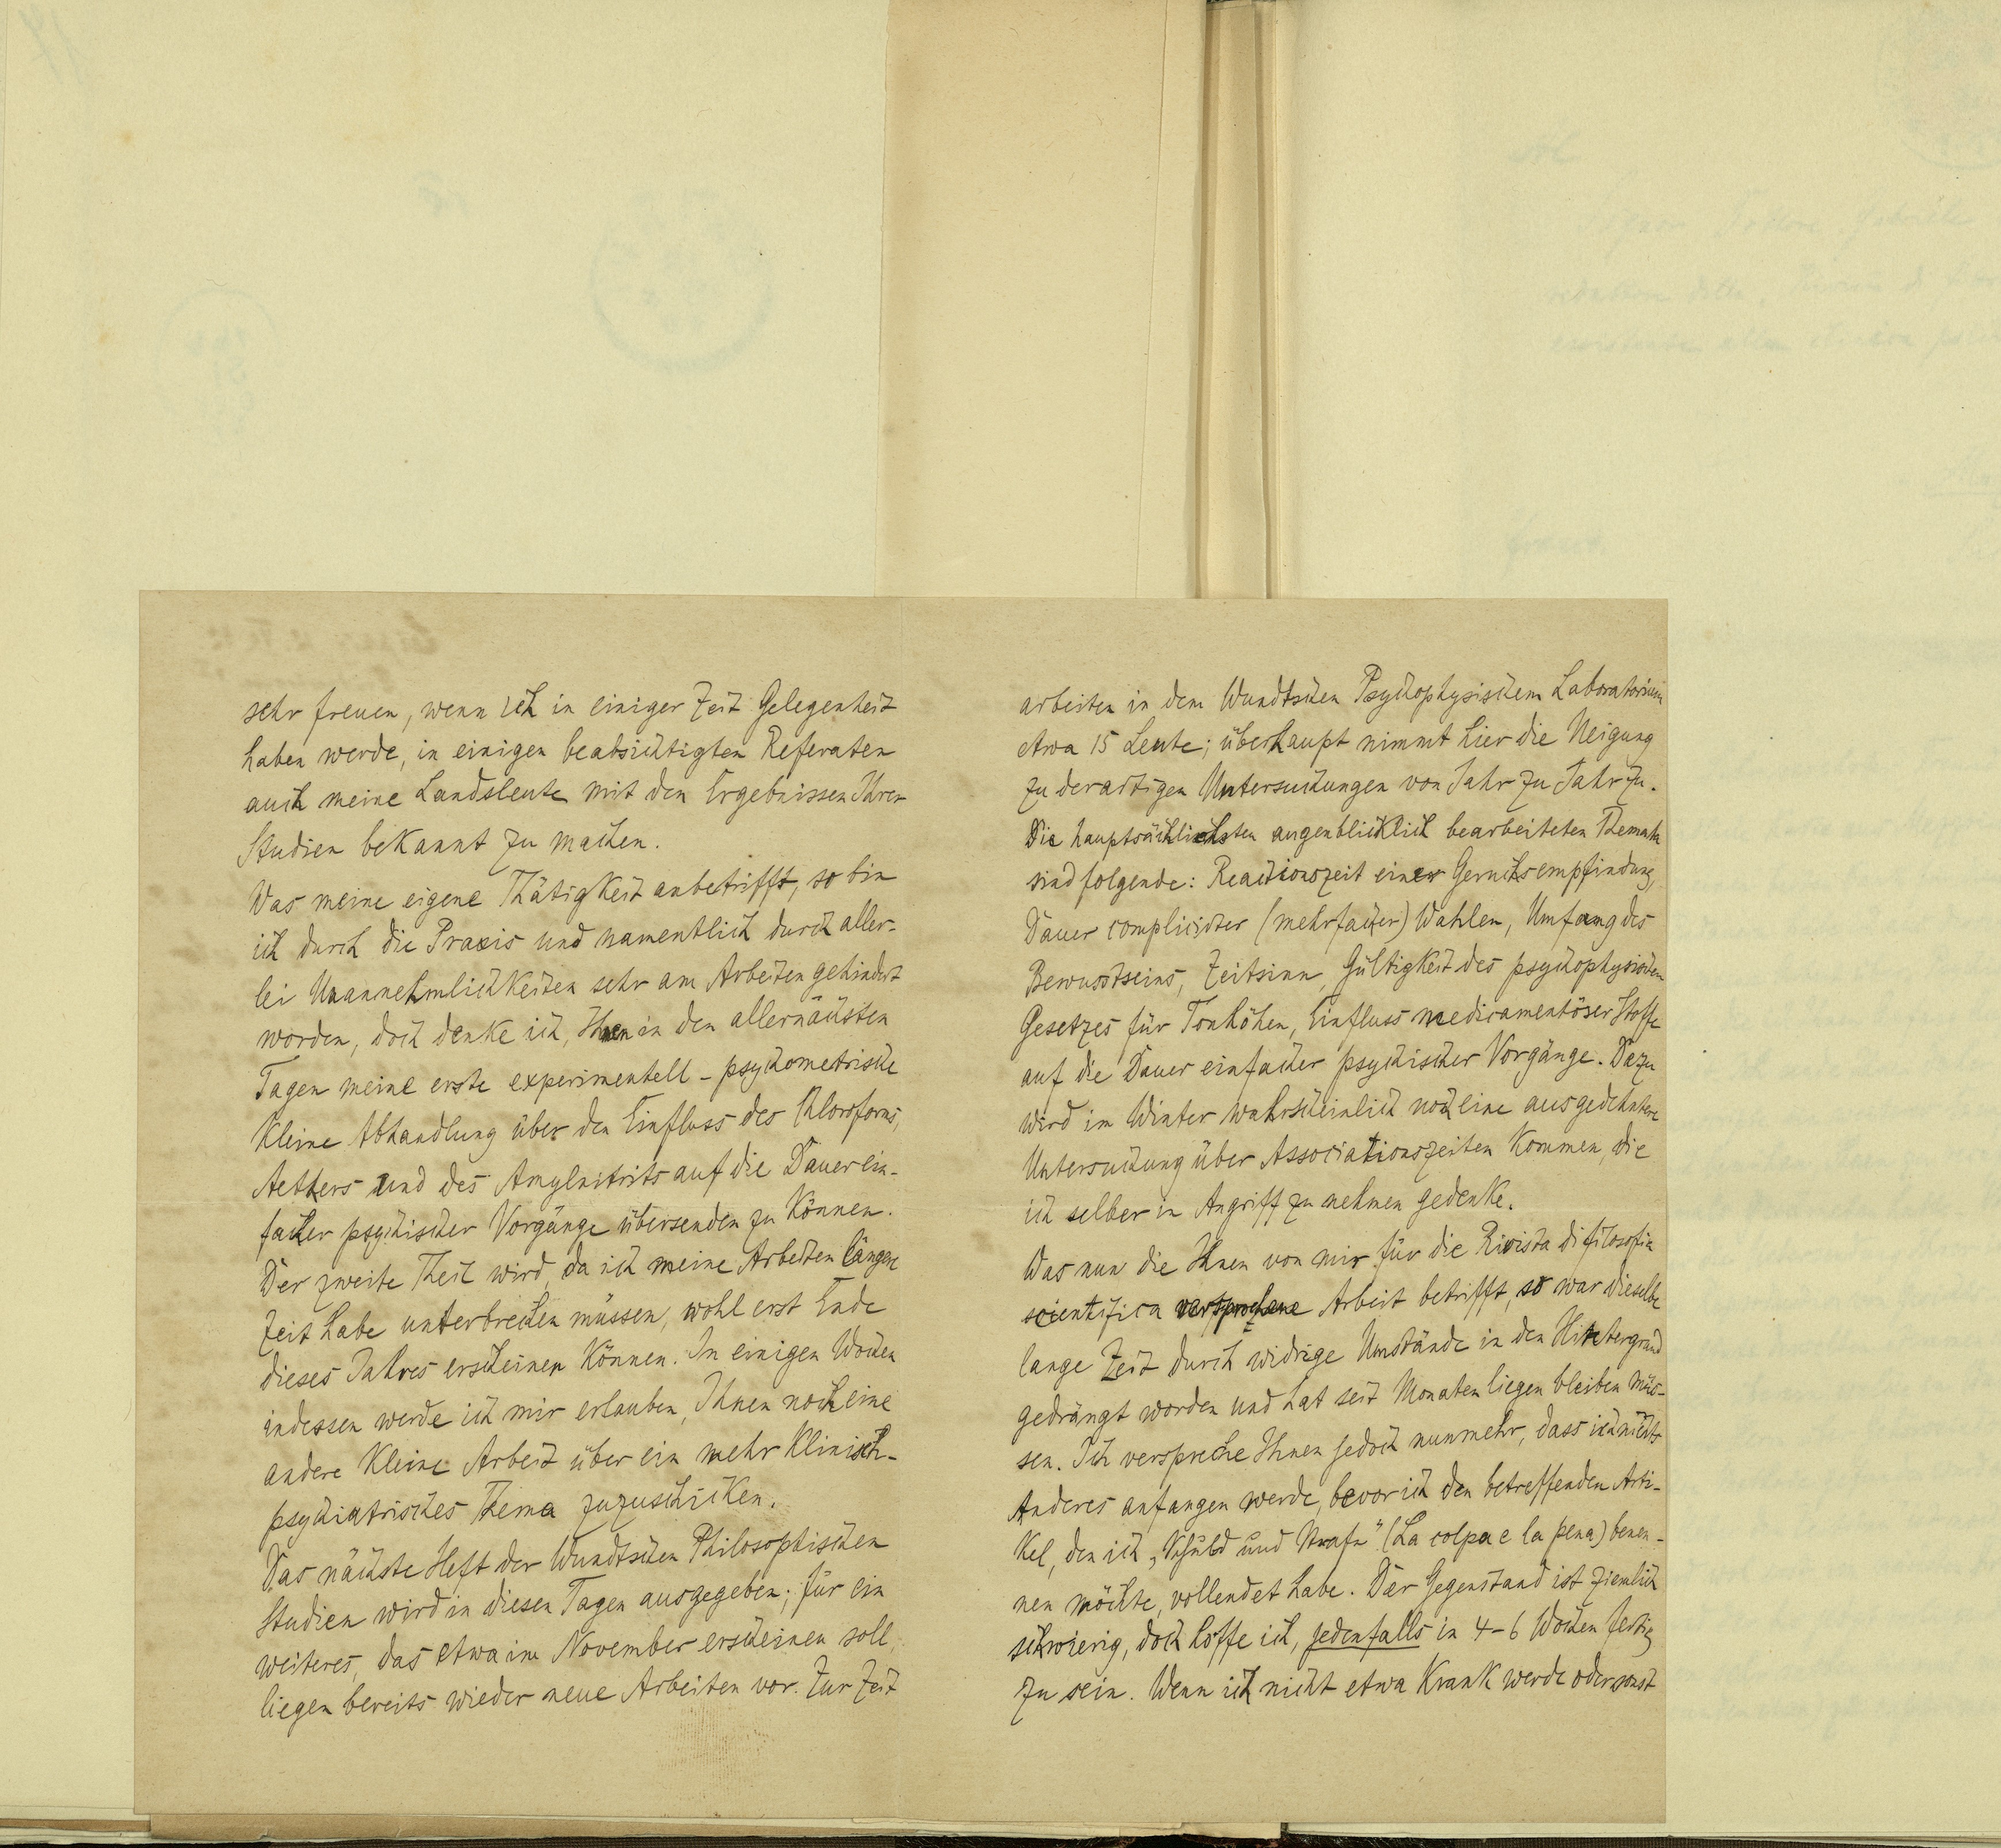 sehr freuen, wenn ich in einiger Zeit Gelegenheit
haben werde, in einigen beabsichtigten Referaten
auch meine Landsleute mit den Ergebnissen Ihrer
Studien bekannt zu machen.
Was meine eigene Thätigkeit anbetrifft, so bin
ich durch die Praxis und namentlich durch aller-
lei Unannehmlichkeiten sehr am Arbeiten gehindert
worden, doch denke ich, Ihnen in den allernächsten
Tagen meine erste experimentell-psychometrische
kleine Abhandlung über den Einfluss des Chloroforms,
Aethers und des Amylnitrits auf die Dauer ein-
facher psychischer Vorgänge übersenden zu können.
Der zweite Theil wird, da ich meine Arbeiten längere
Zeit habe unterbrechen müssen, wohl erst Ende
dieses Jahres erscheinen können. In einigen Wochen
indessen werde ich mir erlauben, Ihnen noch eine
andere kleine Arbeit über ein mehr klinisch-
psychiatrisches Thema zuzuschicken.
Das nächste Heft der Wundtschen Philosophischen
Studien wird in diesen Tagen ausgegeben; für ein
weiteres, das etwa im November erscheinen soll,
liegen bereits wieder neue Arbeiten vor. Zur Zeit
arbeiten in dem Wundtschen Psychophysischem Laboratorium
etwa 15 Leute; überhaupt nimmt hier die Neigung
zu derartigen Untersuchungen von Jahr zu Jahr zu.
Die hauptsächlichsten augenblicklich bearbeiteten Themata
sind folgende: Reactionszeit einer Geruchsempfindung,
Dauer complicirter (mehrfacher) Wahlen, Umfang des
Bewusstseins, Zeitsinn, Gültigkeit des psychophysischen
Gesetzes für Tonhöhen, Einfluss medicamentöser Stoffe
auf die Dauer einfacher psychischer Vorgänge. Dazu
wird im Winter wahrscheinlich noch eine ausgedehntere
Untersuchung über Associationszeiten kommen, die
ich selber in Angriff zu nehmen gedenke.
Was nun die Ihnen von mir für die Rivista di filosofia
scientifica versprochene Arbeit betrifft, so war dieselbe
lange Zeit durch widrige Umstände in den Hintergrund
gedrängt worden und hat seit Monaten liegen bleiben müs-
sen. Ich verspreche Ihnen jedoch nunmehr, dass ich nichts
Anderes anfangen werde, bevor ich den betreffenden Arti-
kel, den ich „Schuld und Strafe" (La colpa e la pena) benen-
nen möchte, vollendet habe. Der Gegenstand ist ziemlich
schwierig, doch hoffe ich, jedenfalls in 4-6 Wochen fertig
zu sein. Wenn ich nicht etwa krank werde oder sonst